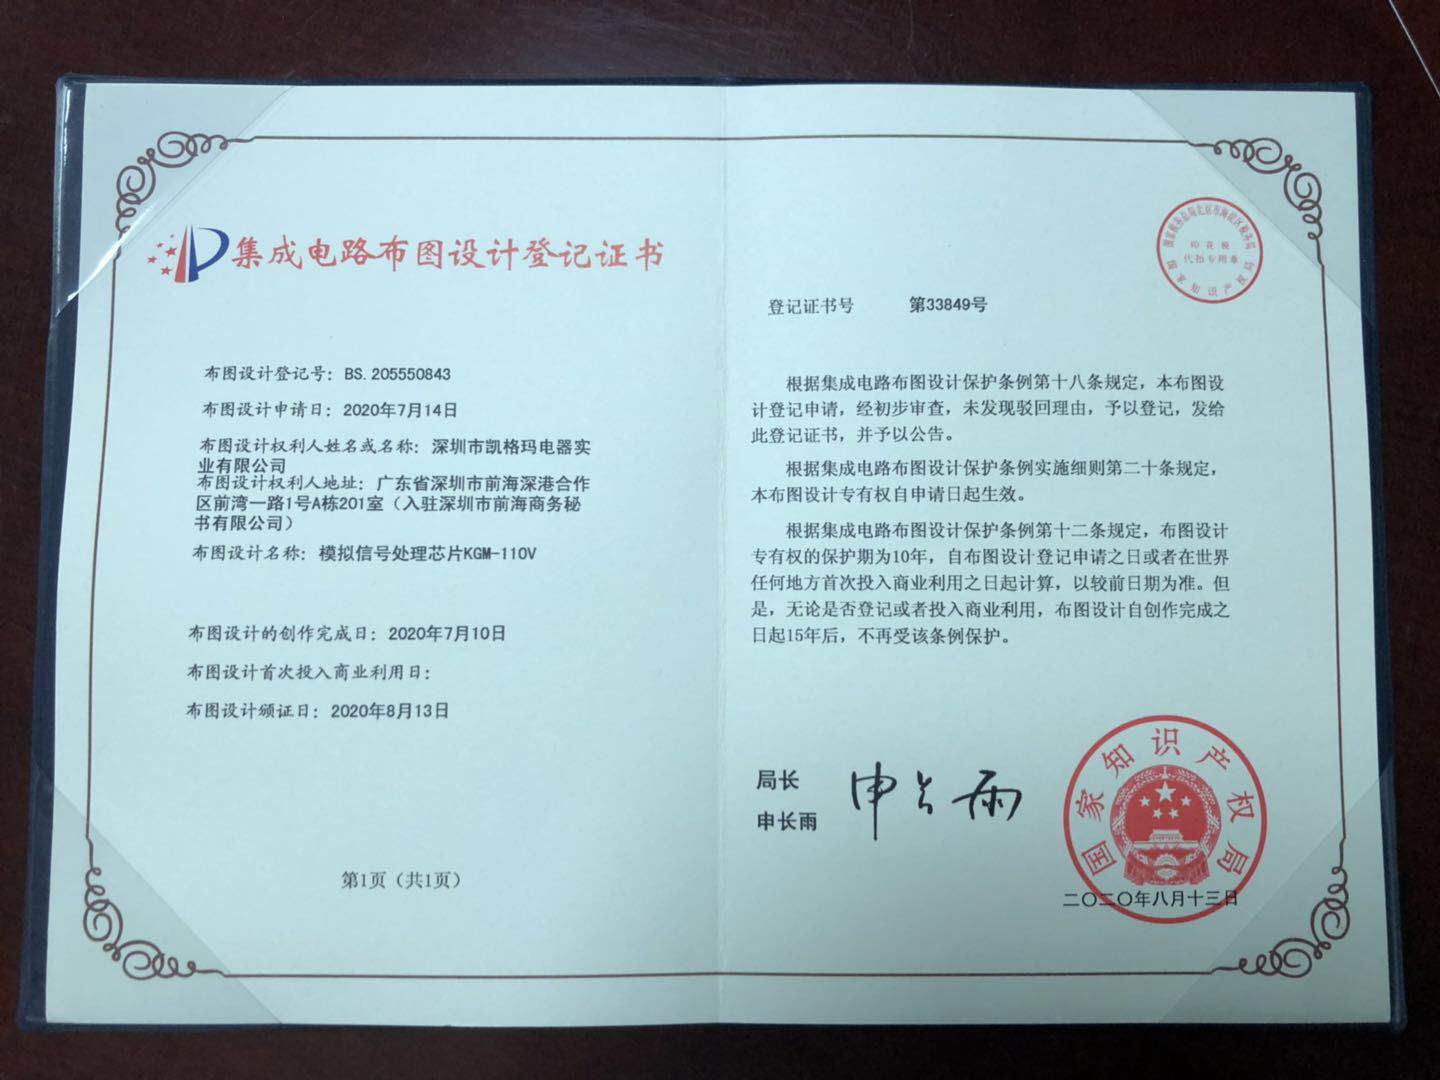 集成电路布图设计登记证书
布图设计登记号：BS.205550843
布图设计申请日：2020年7月14日
布图设计权利人姓名或名称：深圳市凯格玛电器实
业有限公司
布图设计权利人地址：广东省深圳市前海深港合作
区前湾一路1号A栋201室（入驻深圳市前海商务秘
书有限公司）
布图设计名称：模拟信号处理芯片KGM-110V
布图设计的创作完成日：2020年7月10日
布图设计首次投入商业利用日：
布图设计颁证日：2020年8月13日
第1页（共1页）
国家税务总局北京市海淀区税务局
印花税
代扣专用章
国家知识产权局
登记证书号 第33849号
根据集成电路布图设计保护条例第十八条规定，本布图设
计登记申请，经初步审查，未发现驳回理由，予以登记，发给
此登记证书，并予以公告。
根据集成电路布图设计保护条例实施细则第二十条规定，
本布图设计专有权自申请日起生效。
根据集成电路布图设计保护条例第十二条规定，布图设计
专有权的保护期为10年，自布图设计登记申请之日或者在世界
任何地方首次投入商业利用之日起计算，以较前日期为准。但
是，无论是否登记或者投入商业利用，布图设计自创作完成之
日起15年后，不再受该条例保护。
局长
申长雨
申长雨
国家知识产权局
二〇二〇年八月十三日